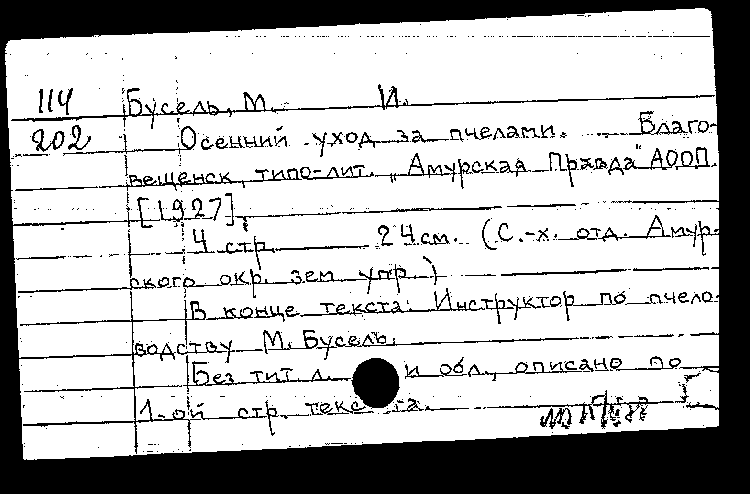 114 Бусель, М. И.
202 Осенний уход за пчелами. . Благо-
вещенск, типо-лит. „Амурская Правда" АООП.
[1927].
4 стр. 24 см. (С.-х. отд. Амур-
ского окр. зем упр.)
В конце текста: Инструктор по пчело-
водству М. Бусель.
Без тит л. и обл., описано по
1-ой стр. текста.